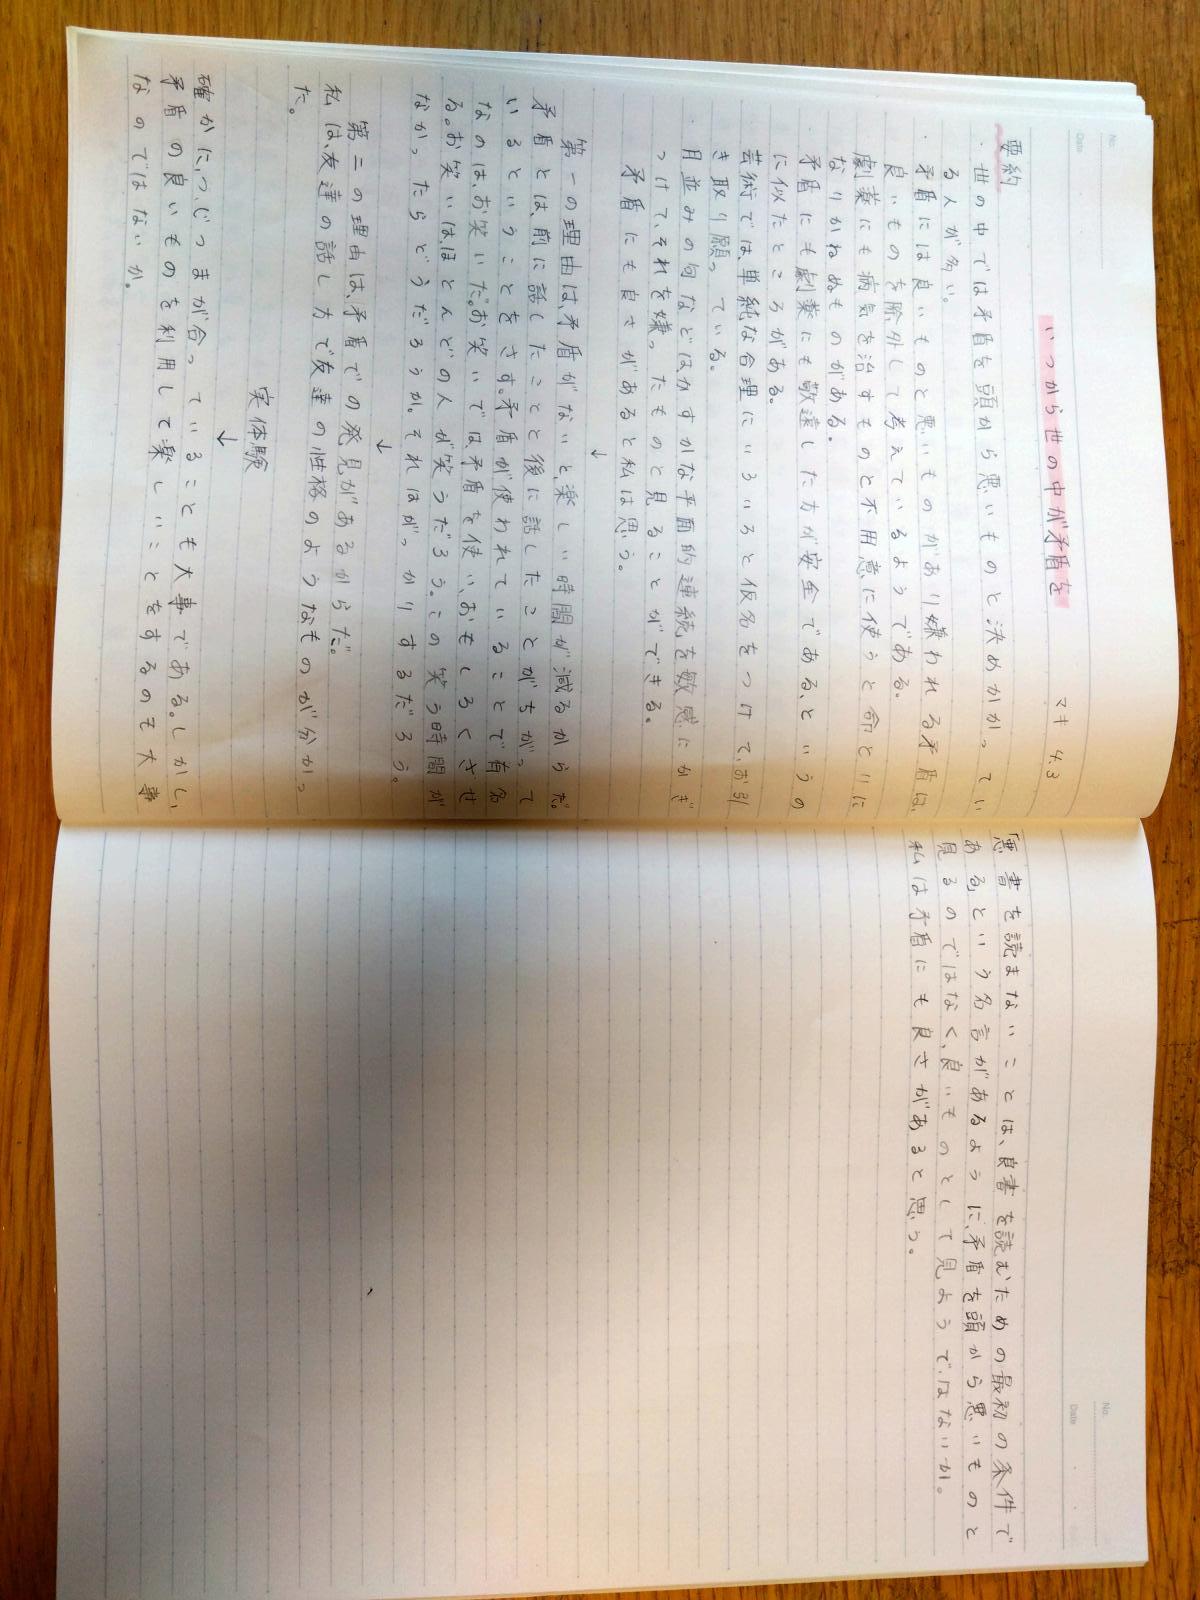 No.
Date
いつから世の中が矛盾を マキ 4.3
要約
・世の中では矛盾を頭から悪いものと決めかかってい
る人が多い。
・矛盾には良いものと悪いものがあり嫌われる矛盾は、
良いものを除外して考えているようである。
劇薬にも病気を治すものと不用意に使うと命とりに
なりかねぬものがある。
矛盾にも劇薬にも敬遠した方が安全である、というの
に似たところがある。
芸術では、単純な合理にいろいろと仮名をつけて、お引
き取り願っている。
・月並みの句などはかすかな平面的連続を敏感にかぎ
つけて、それを嫌ったものと見ることができる。
矛盾にも良さがあると私は思う。
↓
第一の理由は、矛盾がないと楽しい時間が減るからだ。
矛盾とは、前に話したことと後に話したことがちがって
いるということをさす。矛盾が使われていることで有名
なのは、お笑いだ。お笑いでは、矛盾を使い、おもしろくさせ
る。お笑いは、ほとんどの人が笑うだろう。この笑う時間が
なかったらどうだろうか。それはがっかりするだろう。
↓
第二の理由は、矛盾での発見があるからだ。
私は、友達の話し方で友達の性格のようなものが分かっ
た。
実体験
↓
確かに、つじつまが合っていることも大事である。しかし、
矛盾の良いものを利用して楽しいことをするのも大事
なのではないか。
No.
Date
「悪書を読まないことは、良書を読むための最初の条件で
ある」という名言があるように、矛盾を頭から悪いものと
見るのではなく、良いものとして見ようではないか。
私は矛盾にも良さがあると思う。